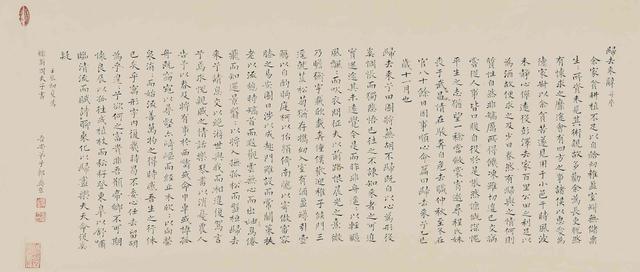 歸去來辭 并序
余家貧耕植不足以自給幼稚盈室缾無儲粟
生生所資未見其術親故多勸余為長吏脫然
有懷求之靡途會有四方之事諸侯以惠愛為
德家叔以余貧苦遂見用于小邑于時風波
未靜心憚遠役彭澤去家百里公田之利足以
為酒故便求之及少日眷然有歸與之情何則
質性自然非矯厲所得饑凍雖切違己交病
嘗從人事皆口腹自役於是悵然慷慨深愧
平生之志猶望一稔當斂裳宵逝尋程氏妹
喪于武昌情在駿奔自免去職仲秋至冬在
官八十餘日因事順心命篇曰歸去來兮乙巳
歲十一月也
歸去來兮田園將蕪胡不歸既自以心為形役
奚惆悵而獨悲悟已往之不諫知來者之可追
寔迷途其未遠覺今是而昨非舟遙遙以輕颺
風飄飄而吹衣問征夫以前路恨晨光之熹微
乃瞻衡宇載欣載奔僮僕歡迎稚子候門三
逕就荒松菊猶存攜幼入室有酒盈罇引壺
觴以自酌眄庭柯以怡顏倚南窗以寄傲審容
膝之易安園日涉以成趣門雖設而常關策扶
老以流憩時矯首而遐觀雲無心而出岫鳥倦
飛而知還景翳翳以將入撫孤松而盤桓歸去
來兮請息交以絕遊世與我而相遺復駕言
兮焉求悅親戚之情話樂琴書以消憂農人
告予以春及將有事於西疇或命巾車或棹孤
舟既窈窕以尋壑亦崎嶇而經丘木欣欣以向榮
泉涓涓而始流善萬物之得時感吾生之行休
已矣乎寓形宇內復幾時曷不委心任去留胡
為乎遑遑兮欲何之富貴非吾願帝鄉不可期
懷良辰以孤往或植杖而耘耔登東皋以舒嘯
臨清流而賦詩聊乘化以歸盡樂夫天命復奚
疑